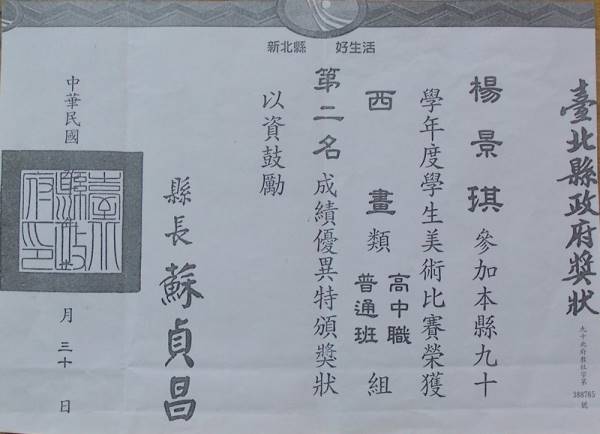 新北縣 好生活
臺北縣政府獎狀
九十北府教社字第 388765 號
楊景琪參加本縣九十
學年度學生美術比賽榮獲
西畫類 高中職普通班 組
第二名成績優異特頒獎狀
以資鼓勵
縣長 蘇貞昌
中華民國 月三十日